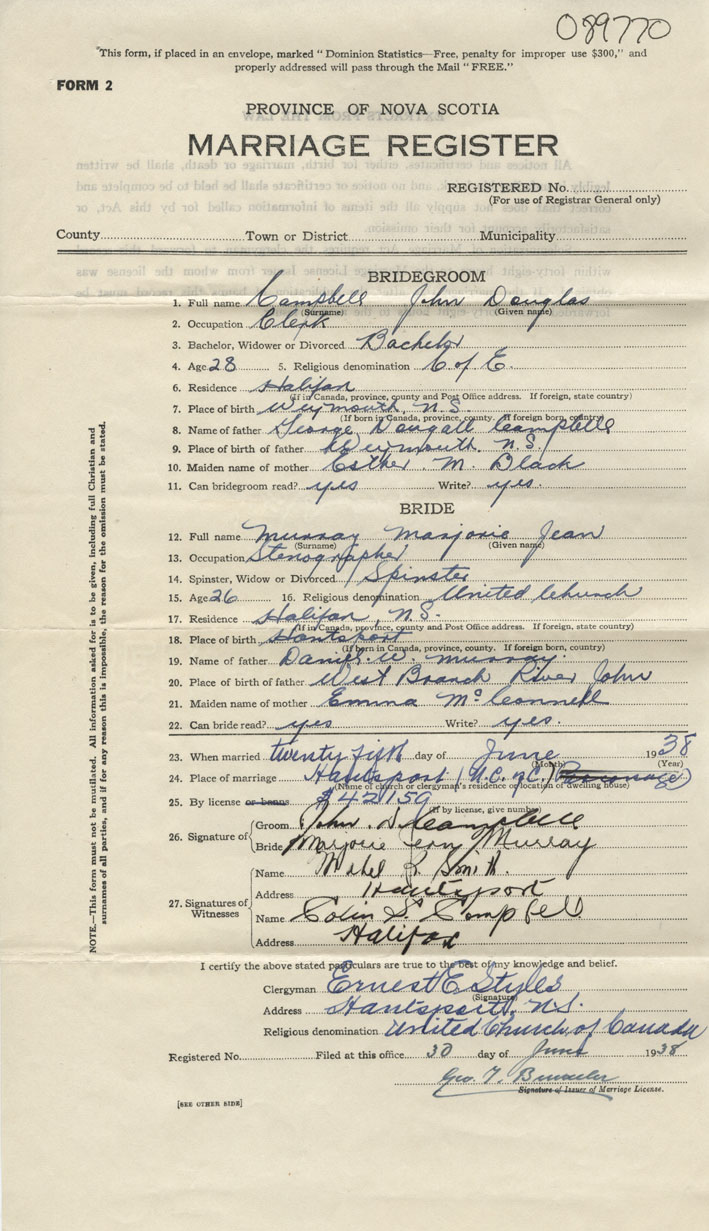 089770
"This form, if placed in an envelope, marked "Dominion Statistics—Free, penalty for improper use $300," and
properly addressed will pass through the Mail "FREE."
FORM 2
PROVINCE OF NOVA SCOTIA
MARRIAGE REGISTER
REGISTERED No.
(For use of Registrar General only)
County Town or District Municipality
BRIDEGROOM
1. Full name Campbell John Douglas
(Surname) (Given name)
2. Occupation Clerk
3. Bachelor, Widower or Divorced Bachelor
4. Age 28 5. Religious denomination C of E.
6. Residence Halifax
(If in Canada, province, county and Post Office address. If foreign, state country)
7. Place of birth Weymouth, N.S.
(If born in Canada, province, county. If foreign born, country)
8. Name of father George Dougall Campbell
9. Place of birth of father Weymouth N.S.
10. Maiden name of mother Esther M. Black
11. Can bridegroom read? yes Write? yes.
BRIDE
12. Full name Murray Marjorie Jean
(Surname) (Given name)
13. Occupation Stenographer
14. Spinster, Widow or Divorced Spinster
15. Age 26 16. Religious denomination United Church
17. Residence Halifax, N.S.
(If in Canada, province, county and Post Office address. If foreign, state country)
18. Place of birth Hantsport
(If born in Canada, province, county. If foreign born, country)
19. Name of father Daniel W. Murray.
20. Place of birth of father West Branch River John
21. Maiden name of mother Emma McConnell
22. Can bride read? yes Write? yes.
23. When married twenty fifth day of June 1938
(Month) (Year)
24. Place of marriage Hantsport (U.C. of C.) (Parsonage)
(Name of church or clergyman's residence or location of dwelling house)
25. By license or banns $42159
(If by license, give number)
26. Signature of Groom John D. Campbell
Bride Marjorie Jean Murray
27. Signatures of Witnesses Name Mabel R. Smith.
Address Hantsport
Name Colin S. Campbell
Address Halifax
I certify the above stated particulars are true to the best of my knowledge and belief.
Clergyman Ernest E. Styles
(Signature)
Address Hantsport, N.S.
Religious denomination United Church of Canada
Registered No. Filed at this office 30 day of June 1938
Geo. T.
Signature of Issuer of Marriage License.
[SEE OTHER SIDE]
NOTE.—This form must not be mutilated. All information asked for is to be given, including full Christian and
surnames of all parties, and if for any reason this is impossible, the reason for the omission must be stated.